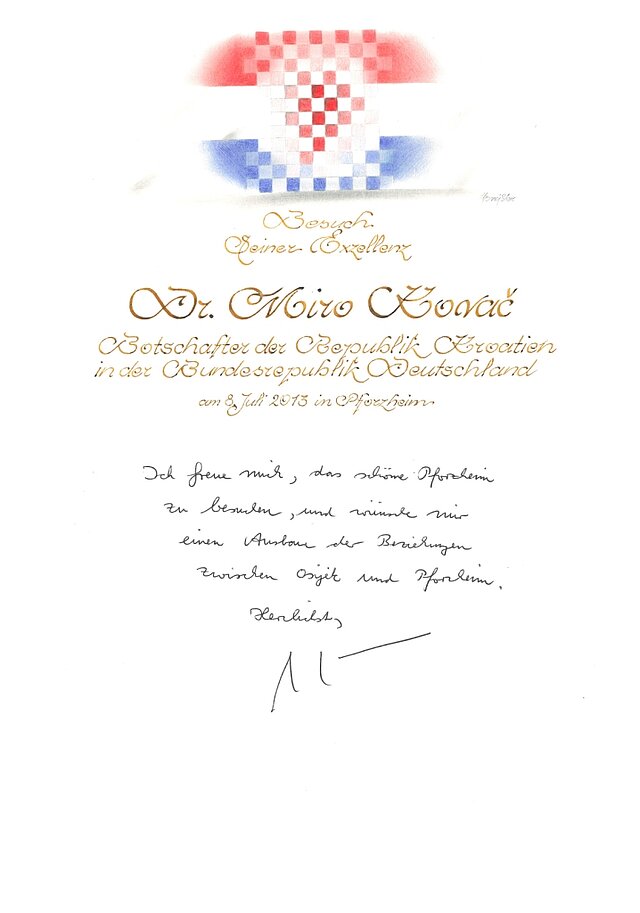 Besuch
Seiner Exzellenz
Dr. Miro Kovač
Botschafter der Republik Kroatien
in der Bundesrepublik Deutschland
am 8. Juli 2013 in Pforzheim
Ich freue mich, das schöne Pforzheim
zu besuchen, und wünsche mir
einen Ausbau der Beziehungen
zwischen Osijek und Pforzheim.
Herzlichst,